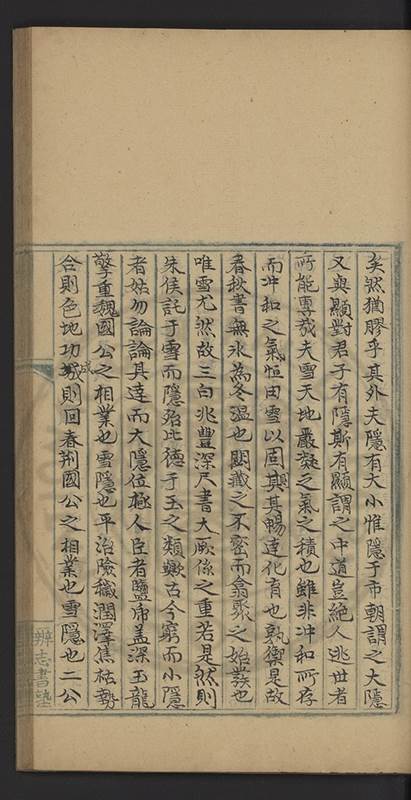 矣然猶膠乎其外夫隱有大小惟隱于市朝謂之大隱
又與顯對君子有隱斯有顯謂之中道豈絕人逃世者
所能專哉夫雪天地嚴凝之氣之積也雖非冲和所存
而冲和之氣恒由雪以固其暢達化育也孰禦是故
春秋書無氷為冬溫也閉藏之不密而翕聚之始發也
唯雪尤然故三白兆豐深尺書大厥係之重若是然則
朱侯託于雪而隱殆比德于玉之類歟古今窮而小隱
者姑勿論論其達而大隱位極人臣者鹽虎盖深玉龍
擎重魏國公之相業也雪隱也平治險穢潤澤焦枯勢
合則色地功成則回春荊國公之相業也雪隱也二公
辨志書塾